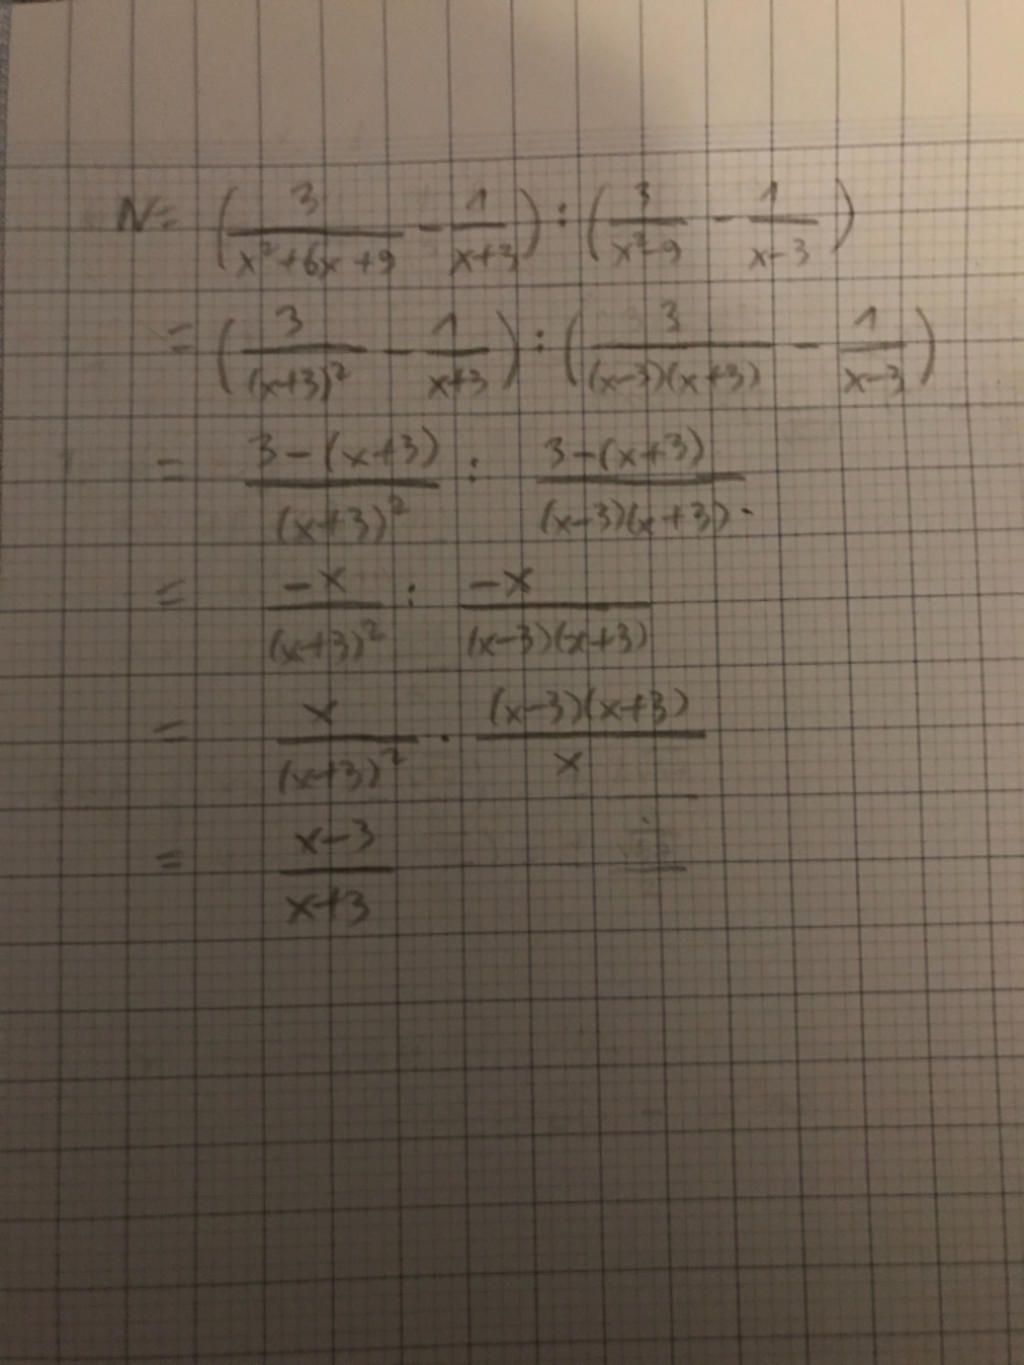 N = (3/(x²+6x+9) - 1/(x+3)) : (3/(x²-9) - 1/(x-3))
= (3/(x+3)² - 1/(x+3)) : (3/((x-3)(x+3)) - 1/(x-3))
= (3-(x+3))/(x+3)² : (3-(x+3))/((x-3)(x+3)) ·
= -x/(x+3)² : -x/((x-3)(x+3))
= x/(x+3)² · ((x-3)(x+3))/x
= (x-3)/(x+3)